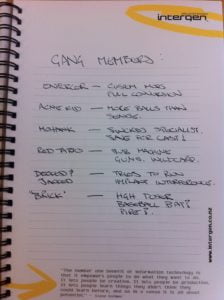 intergen
GANG MEMBERS:
— CUSTOM MODS
FULL CONVERSION
ACNE KID — MORE BALLS THAN
SENSE.
MOHAWK — SWORDS SPECIALIST.
SAVE FOR LAST!
RED TATTOO —
GUNS. WILDCARD.
— TRIES TO RUN
INTERFERENCE.
"BRICK" —
BASEBALL BAT!
FIRE!
www.intergen.co.nz
"The number one benefit of information technology is
that it empowers people to do what they want to do.
It lets people be creative. It lets people be productive.
It lets people learn things they didn't think they
could learn before, and so in a sense it is all about
potential."